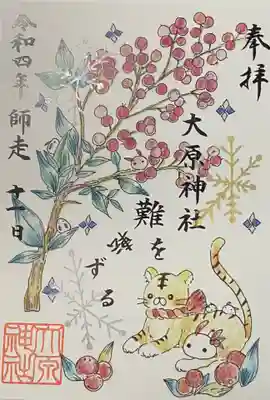 奉拝
大原神社
難を
ずる
令和四年 師走
十一日
大原
神社